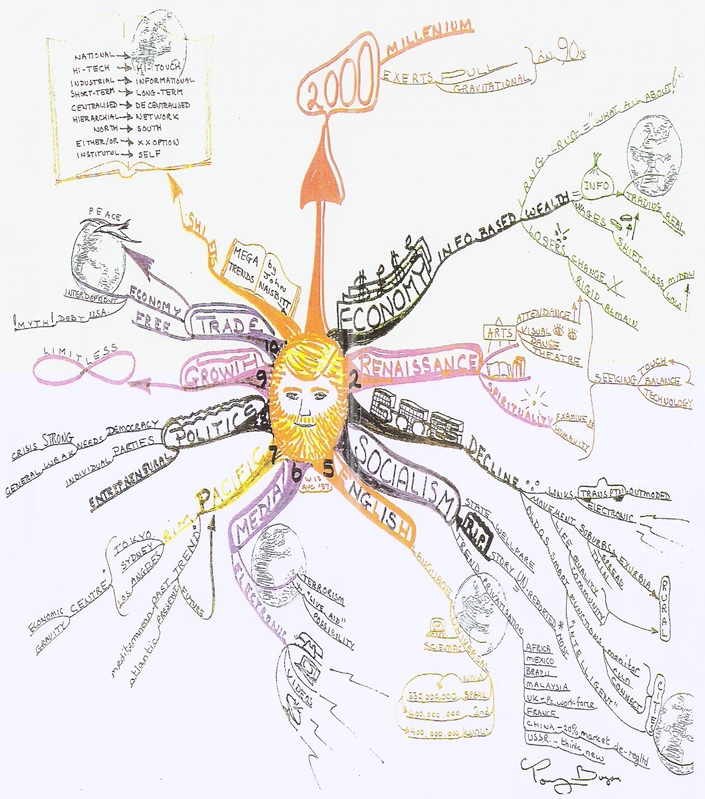 NATIONAL →
HI-TECH → HI-TOUCH
INDUSTRIAL → INFORMATIONAL
SHORT-TERM → LONG-TERM
CENTRALISED → DECENTRALISED
HIERARCHIAL → NETWORK
NORTH → SOUTH
EITHER/OR → XX OPTION
INSTITUTNL → SELF
SHIFTS
MEGA
TRENDS
by
John
NAISBITT
2000
MILLENIUM
EXERTS PULL
GRAVITATIONAL
in 90s
1
ECONOMY
INFO. BASED WEALTH =
INFO
TRADING REAL
WAGES
SHIFT CLASS MIDDLE
LOW
LOSERS
CHANGE X
RIGID REMAIN
= "WHAT ALL ABOUT!"
2
RENAISSANCE
ARTS
ATTENDANCE
VISUAL
DANCE
THEATRE
SPIRITUALITY
EXAMINE OF
HUMANITY
SEEKING
TOUCH
BALANCE
TECHNOLOGY
DECLINE
LINKS TRANSPTN OUTMODED
ELECTRONIC
MOVEMENT SUBURBS EXURBIA
SPREAD
THIN
LIFE QUALITY
COMMUNITY
RURAL
BLDGS SMART FUNCTIONS
"INTELLIGENT"
monitor
run
CONNECT
CITIES
SOCIALISM
R.I.P!
STATE WELFARE
STORY UN-REPORTED * MOST
TREND PRIVATISATION
AFRICA
MEXICO
BRAZIL
MALAYSIA
UK - 1/3 workforce
FRANCE
CHINA - 20% market de-regltd
USSR - think new
5
ENGLISH
LANGUAGE
UNIVERSAL
SCIENTIFIC
330,000,000 SPEAK
400,000,000 2nd
6
MEDIA
ELECTRONIC
TERRORISM
"LIVE AID"
POSSIBILITY
VIDEOS
7
PACIFIC
RIM
TOKYO
SYDNEY
LOS ANGELES
ECONOMIC CENTRE
GRAVITY
TREND
mediterranean PAST
atlantic PRESENT
FUTURE
POLITICS
NEEDS DEMOCRACY
CRISIS STRONG
GENERAL WEAK
INDIVIDUAL PARTIES
ENTREPRENEURAL
9
GROWTH
LIMITLESS
10
TRADE
ECONOMY
FREE
PEACE
INTERDEPNDNT
MYTH! DEBT USA
Tony Buzan